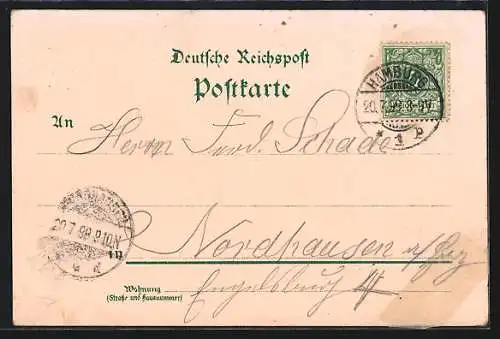 Deutsche Reichspost
Postkarte
HAMBURG
20.7.99.8-9V
* 1 b
An
Herrn Ferd. Schade
20 7 99 9-10N
in
Nordhausen a/Hrz
Wohnung
(Straße und Hausnummer)
Engelsburg